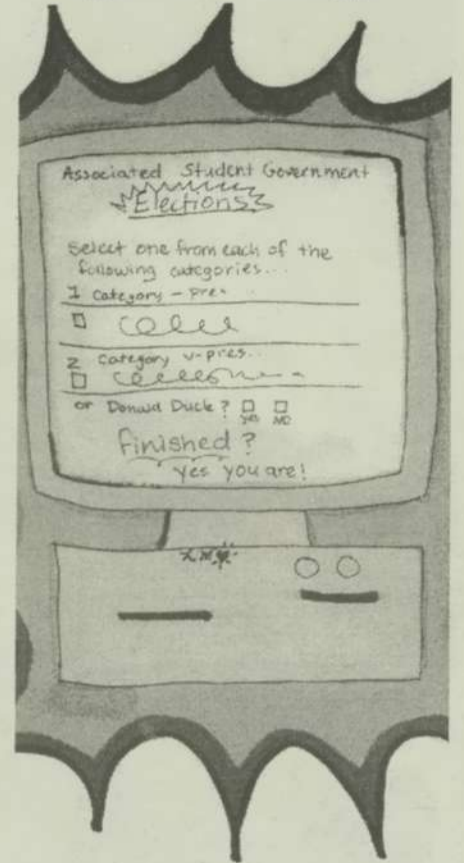 Associated Student Government
Elections
Select one from each of the
following categories...
1 Category - pres
2 Category v-pres..
or Donald Duck? yes NO
finished?
yes you are!